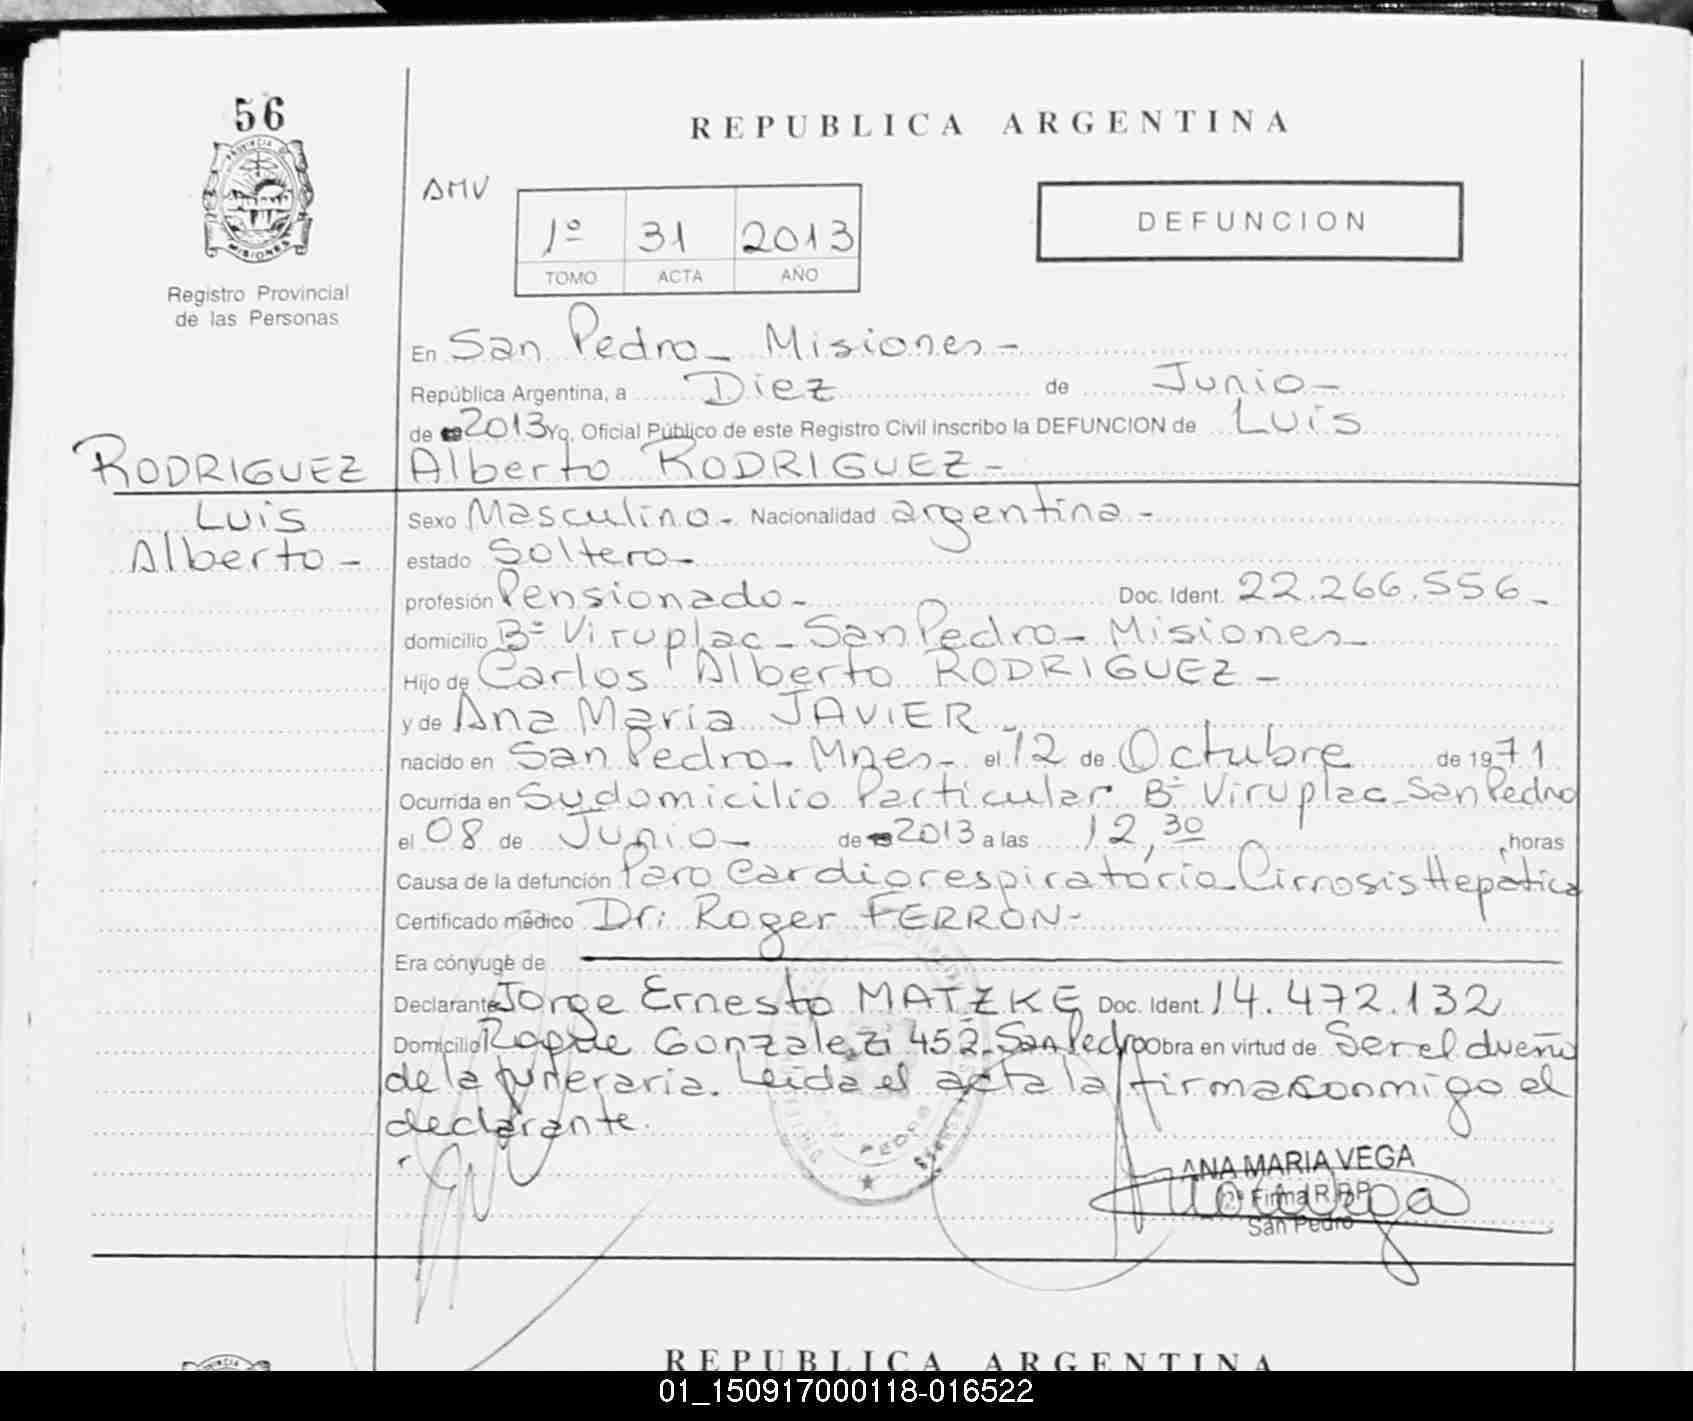 56
PROVINCIA DE
MISIONES
Registro Provincial
de las Personas
REPUBLICA ARGENTINA
AMV
1º 31 2013
TOMO ACTA AÑO
DEFUNCION
En San Pedro - Misiones -
República Argentina, a Diez de Junio -
de 2013 Yo, Oficial Público de este Registro Civil inscribo la DEFUNCION de Luis
RODRIGUEZ Alberto RODRIGUEZ -
Luis Sexo Masculino - Nacionalidad argentina -
Alberto - estado Soltero -
profesión Pensionado - Doc. Ident. 22.266.556 -
domicilio Bº Viruplac - San Pedro - Misiones -
Hijo de Carlos Alberto RODRIGUEZ -
y de Ana Maria JAVIER -
nacido en San Pedro - Mnes - el 12 de Octubre de 1971
Ocurrida en Su domicilio Particular Bº Viruplac - San Pedro
el 08 de Junio - de 2013 a las 12,30 horas
Causa de la defunción Paro Cardiorespiratorio - Cirrosis Hepática
Certificado médico Dr: Roger FERRON -
Era cónyuge de
Declarante Jorge Ernesto MATZKE Doc. Ident. 14.472.132
Domicilio Roque Gonzalez 452 - San Pedro Obra en virtud de Ser el dueño
de la funeraria. Leida el acta la firma conmigo el
declarante.
PEDRO
ANA MARIA VEGA
Firma R.P.P.
San Pedro
REPUBLICA ARGENTINA
01_150917000118-016522